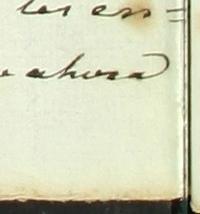 les en=
ahora